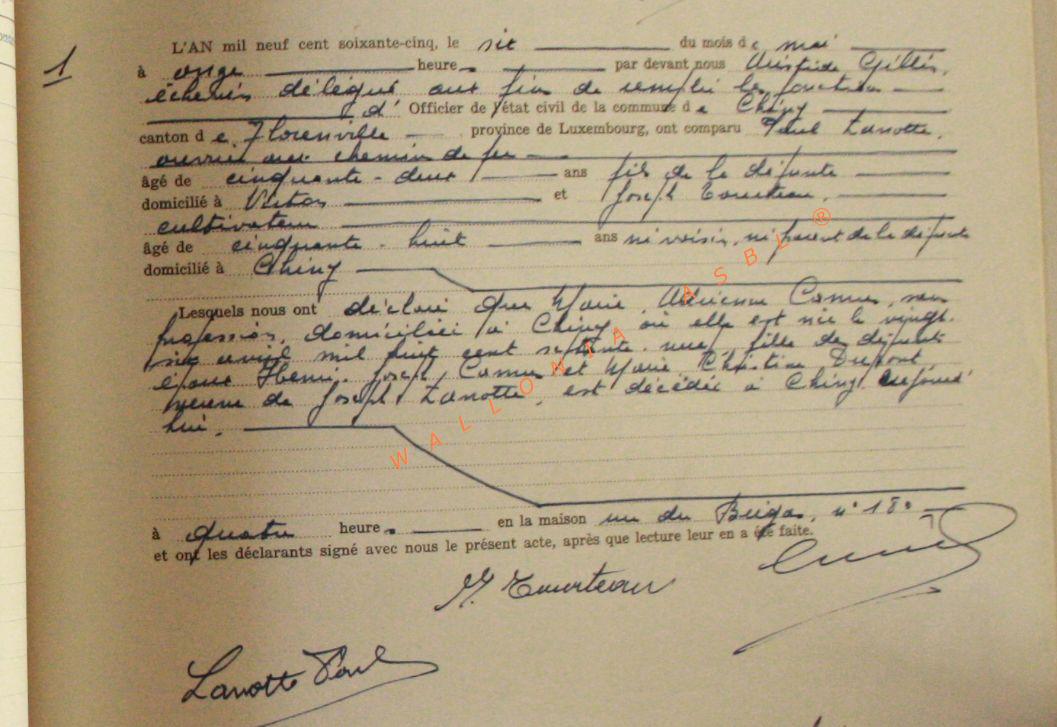 1
L'AN mil neuf cent soixante-cinq, le six du mois de mai
à onze heures par devant nous Aristide Gillis,
échevin délégué aux fins de remplir les fonctions
d' Officier de l'état civil de la commune de Chiny
canton de Florenville province de Luxembourg, ont comparu Paul Lanotte,
ouvrier aux chemins de fer
âgé de cinquante-deux ans fils de la défunte
domicilié à Virton et Joseph Tourteau,
cultivateur
âgé de cinquante-huit ans ni voisin, ni parent de la défunte
domicilié à Chiny
Lesquels nous ont déclaré que Marie, Adrienne Camus, sans
profession, domiciliée à Chiny où elle est née le vingt-
six avril mil huit cent septante-neuf, fille des défunts
époux Henri, Joseph, Camus et Marie Christine Dupont,
veuve de Joseph Lanotte, est décédée à Chiny aujourd'
hui,
à quatre heures en la maison rue du n° 180
et ont les déclarants signé avec nous le présent acte, après que lecture leur en a été faite.
J. Tourteau
Lanotte Paul
WALLONIA ASBL ®